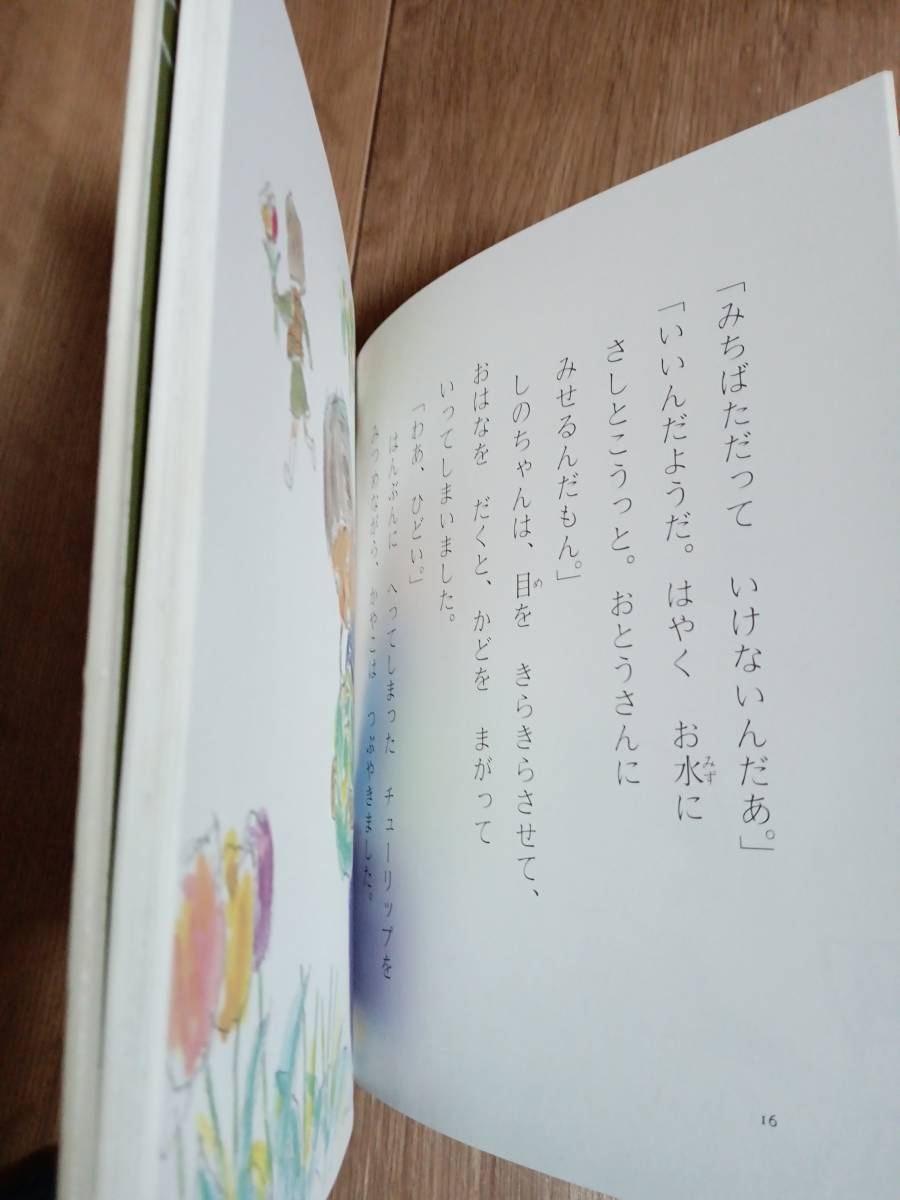 「みちばただって　いけないんだあ。」
「いいんだようだ。はやく　お水に
さしとこうっと。おとうさんに
みせるんだもん。」
しのちゃんは、目を　きらきらさせて、
おはなを　だくと、かどを　まがって
いってしまいました。
「わあ、ひどい。」
はんぶんに　へってしまった　チューリップを
みつめながら、かやこは　つぶやきました。
16